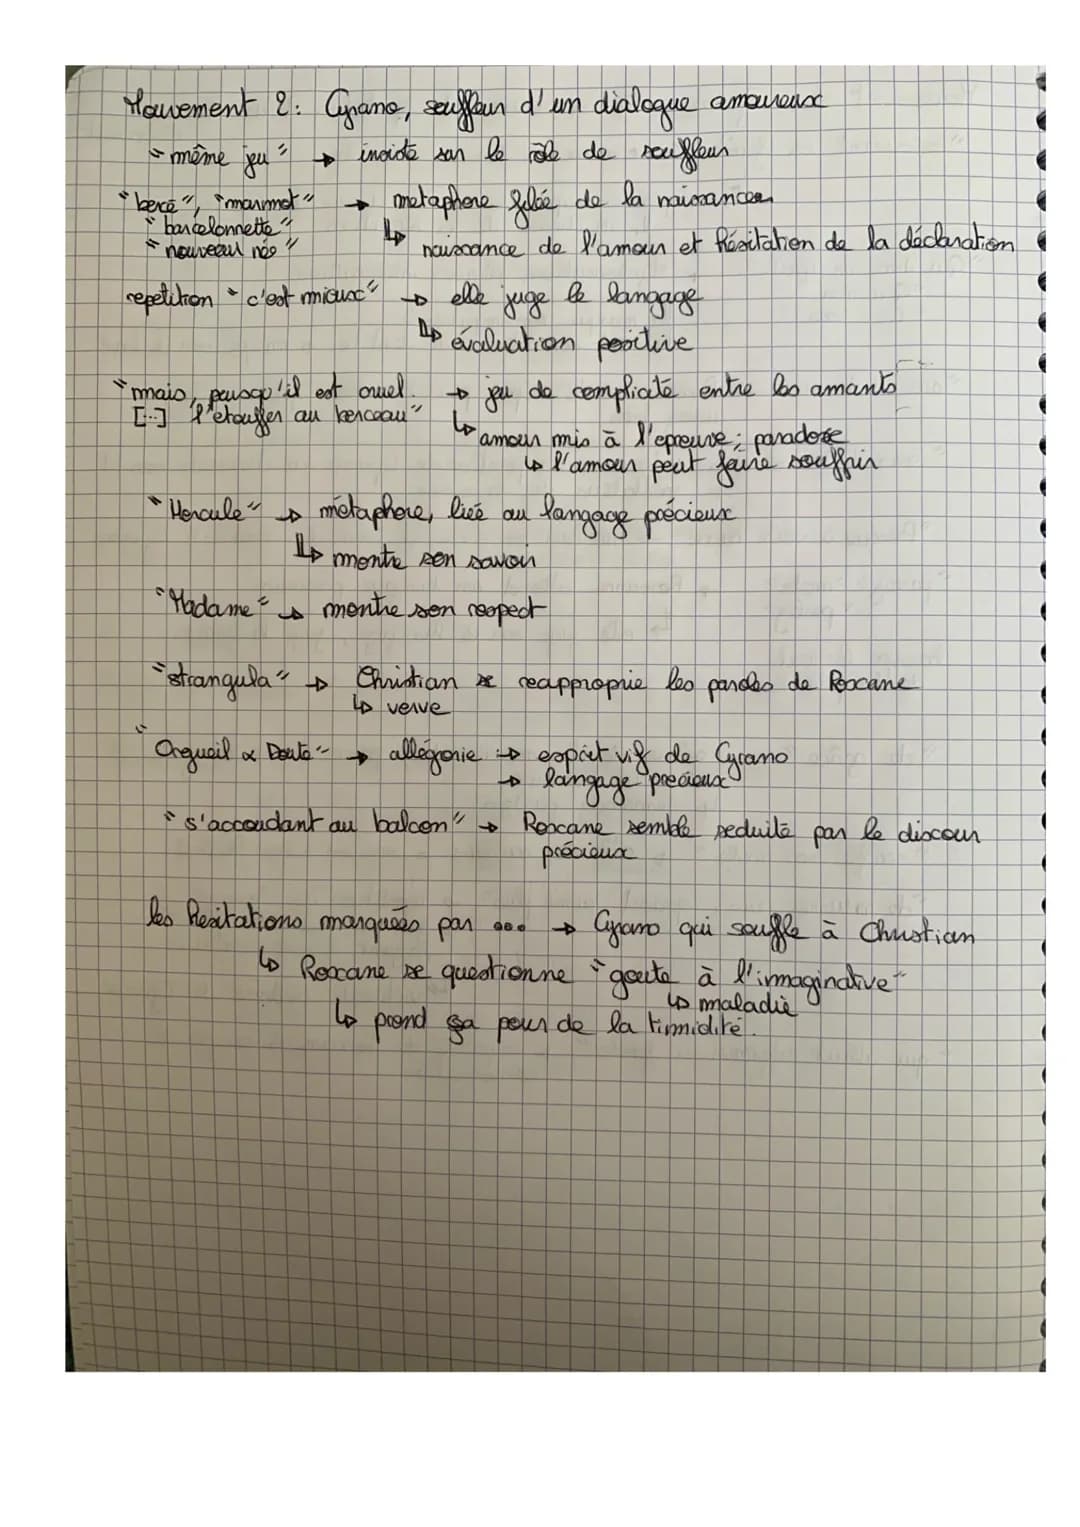 Mouvement 2: Cyrano, souffleur d'un dialogue amoureux
"même jeu" → insiste sur le rôle de souffleur
"bercé", "marmot" → metaphore filée de la naissance
"barcelonnette" ↳ naissance de l'amour et hésitation de la déclaration
"nouveau née"
repetition "c'est mieux" → elle juge le langage
↳ évaluation positive
"mais, puisqu'il est cruel → jeu de complicité entre les amants
[...] l'etouffer au berceau" ↳ amour mis à l'epreuve; paradoxe
↳ l'amour peut faire souffrir
"Hercule" → métaphore, liée au langage précieux
↳ montre son savoir
"Madame" → montre son respect
"strangula" → Christian se reapproprie les paroles de Roxane
↳ verve
"Orgueil & Doute" → allégorie → esprit vif de Cyrano
→ langage précieux
"s'accoudant au balcon" → Roxane semble seduite par le discour
précieux
les hesitations marquées par ... → Cyrano qui souffle à Christian
↳ Roxane se questionne "goute à l'imaginative"
↳ maladie
↳ prend ça pour de la timidité.